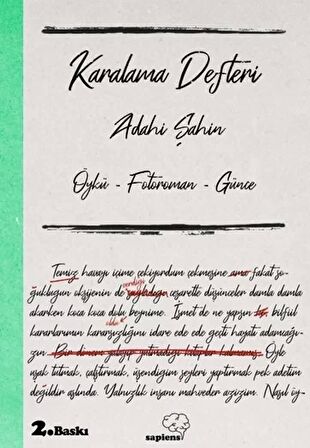 Karalama Defteri
Adahi Şahin
Öykü - Fotoroman - Günce
Temiz havayı içime çekiyordum çekmesine ama fakat so-
verdiği
ğukluğun oksijenin de sağladığı cesaretle düşünceler damla damla
akarken koca koca dolu beynime. İsmet de ne yapsın bilfiil
oldu
kararlarımın kararsızlığını idare ede ede geçti hayatı adamcağı-
zın. Bir dönem yatmadığı kalmamış. Öyle
uşak tutmak, çalıştırmak, işendiğim şeyleri yaptırmak pek adetim
değildir aslında. Yalnızlık insanı mahveder azizim. Nasıl iy-
2.Baskı
sapiens